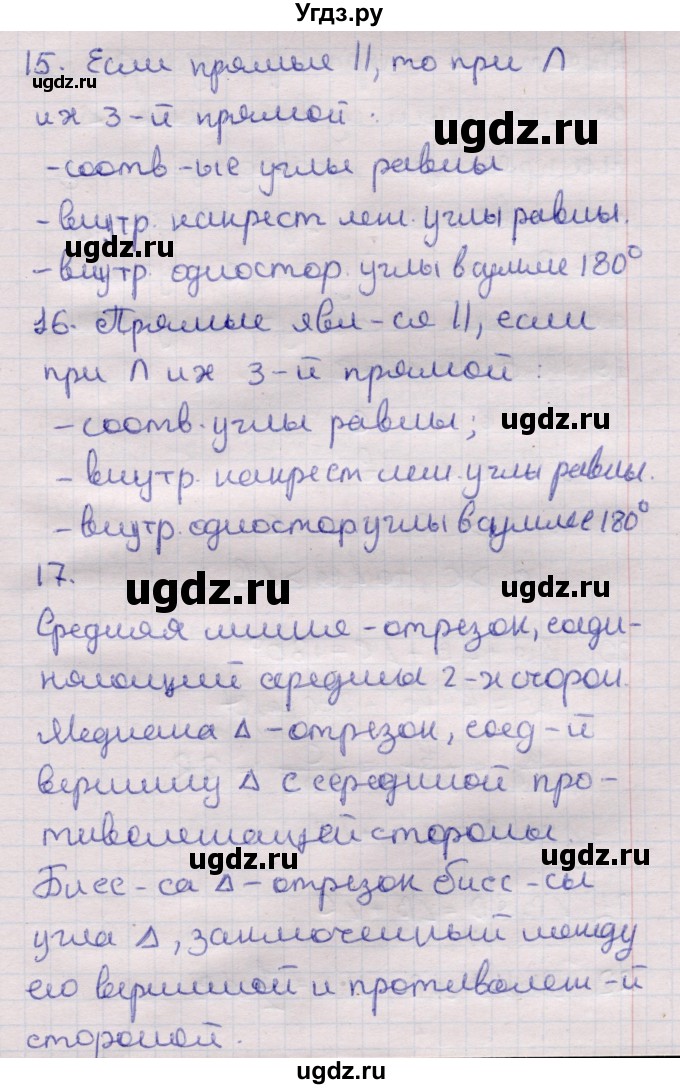 Угдз.ру
15. Если прямые ||, то при ∩
их 3-й прямой:
-соотв-ые углы равны
-внутр. накрест леж. углы равны.
-внутр. одностор. углы в сумме 180°
16. Прямые явл-ся ||, если
при ∩ их 3-й прямой:
-соотв. углы равны;
-внутр. накрест леж. углы равны.
-внутр. одностор углы в сумме 180°
17.
Средняя линия-отрезок, соеди-
няющий середины 2-х сторон.
Медиана Δ-отрезок, соед-й
вершину Δ с серединой про-
тиволежащей стороны.
Бисс-са Δ-отрезок бисс-сы
угла Δ, заключенный между
его вершиной и противолеж-й
стороной.
ugdz.ru
ugdz.ru
ugdz.ru
ugdz.ru
ugdz.ru
ugdz.ru
ugdz.ru
ugdz.ru
ugdz.ru
ugdz.ru